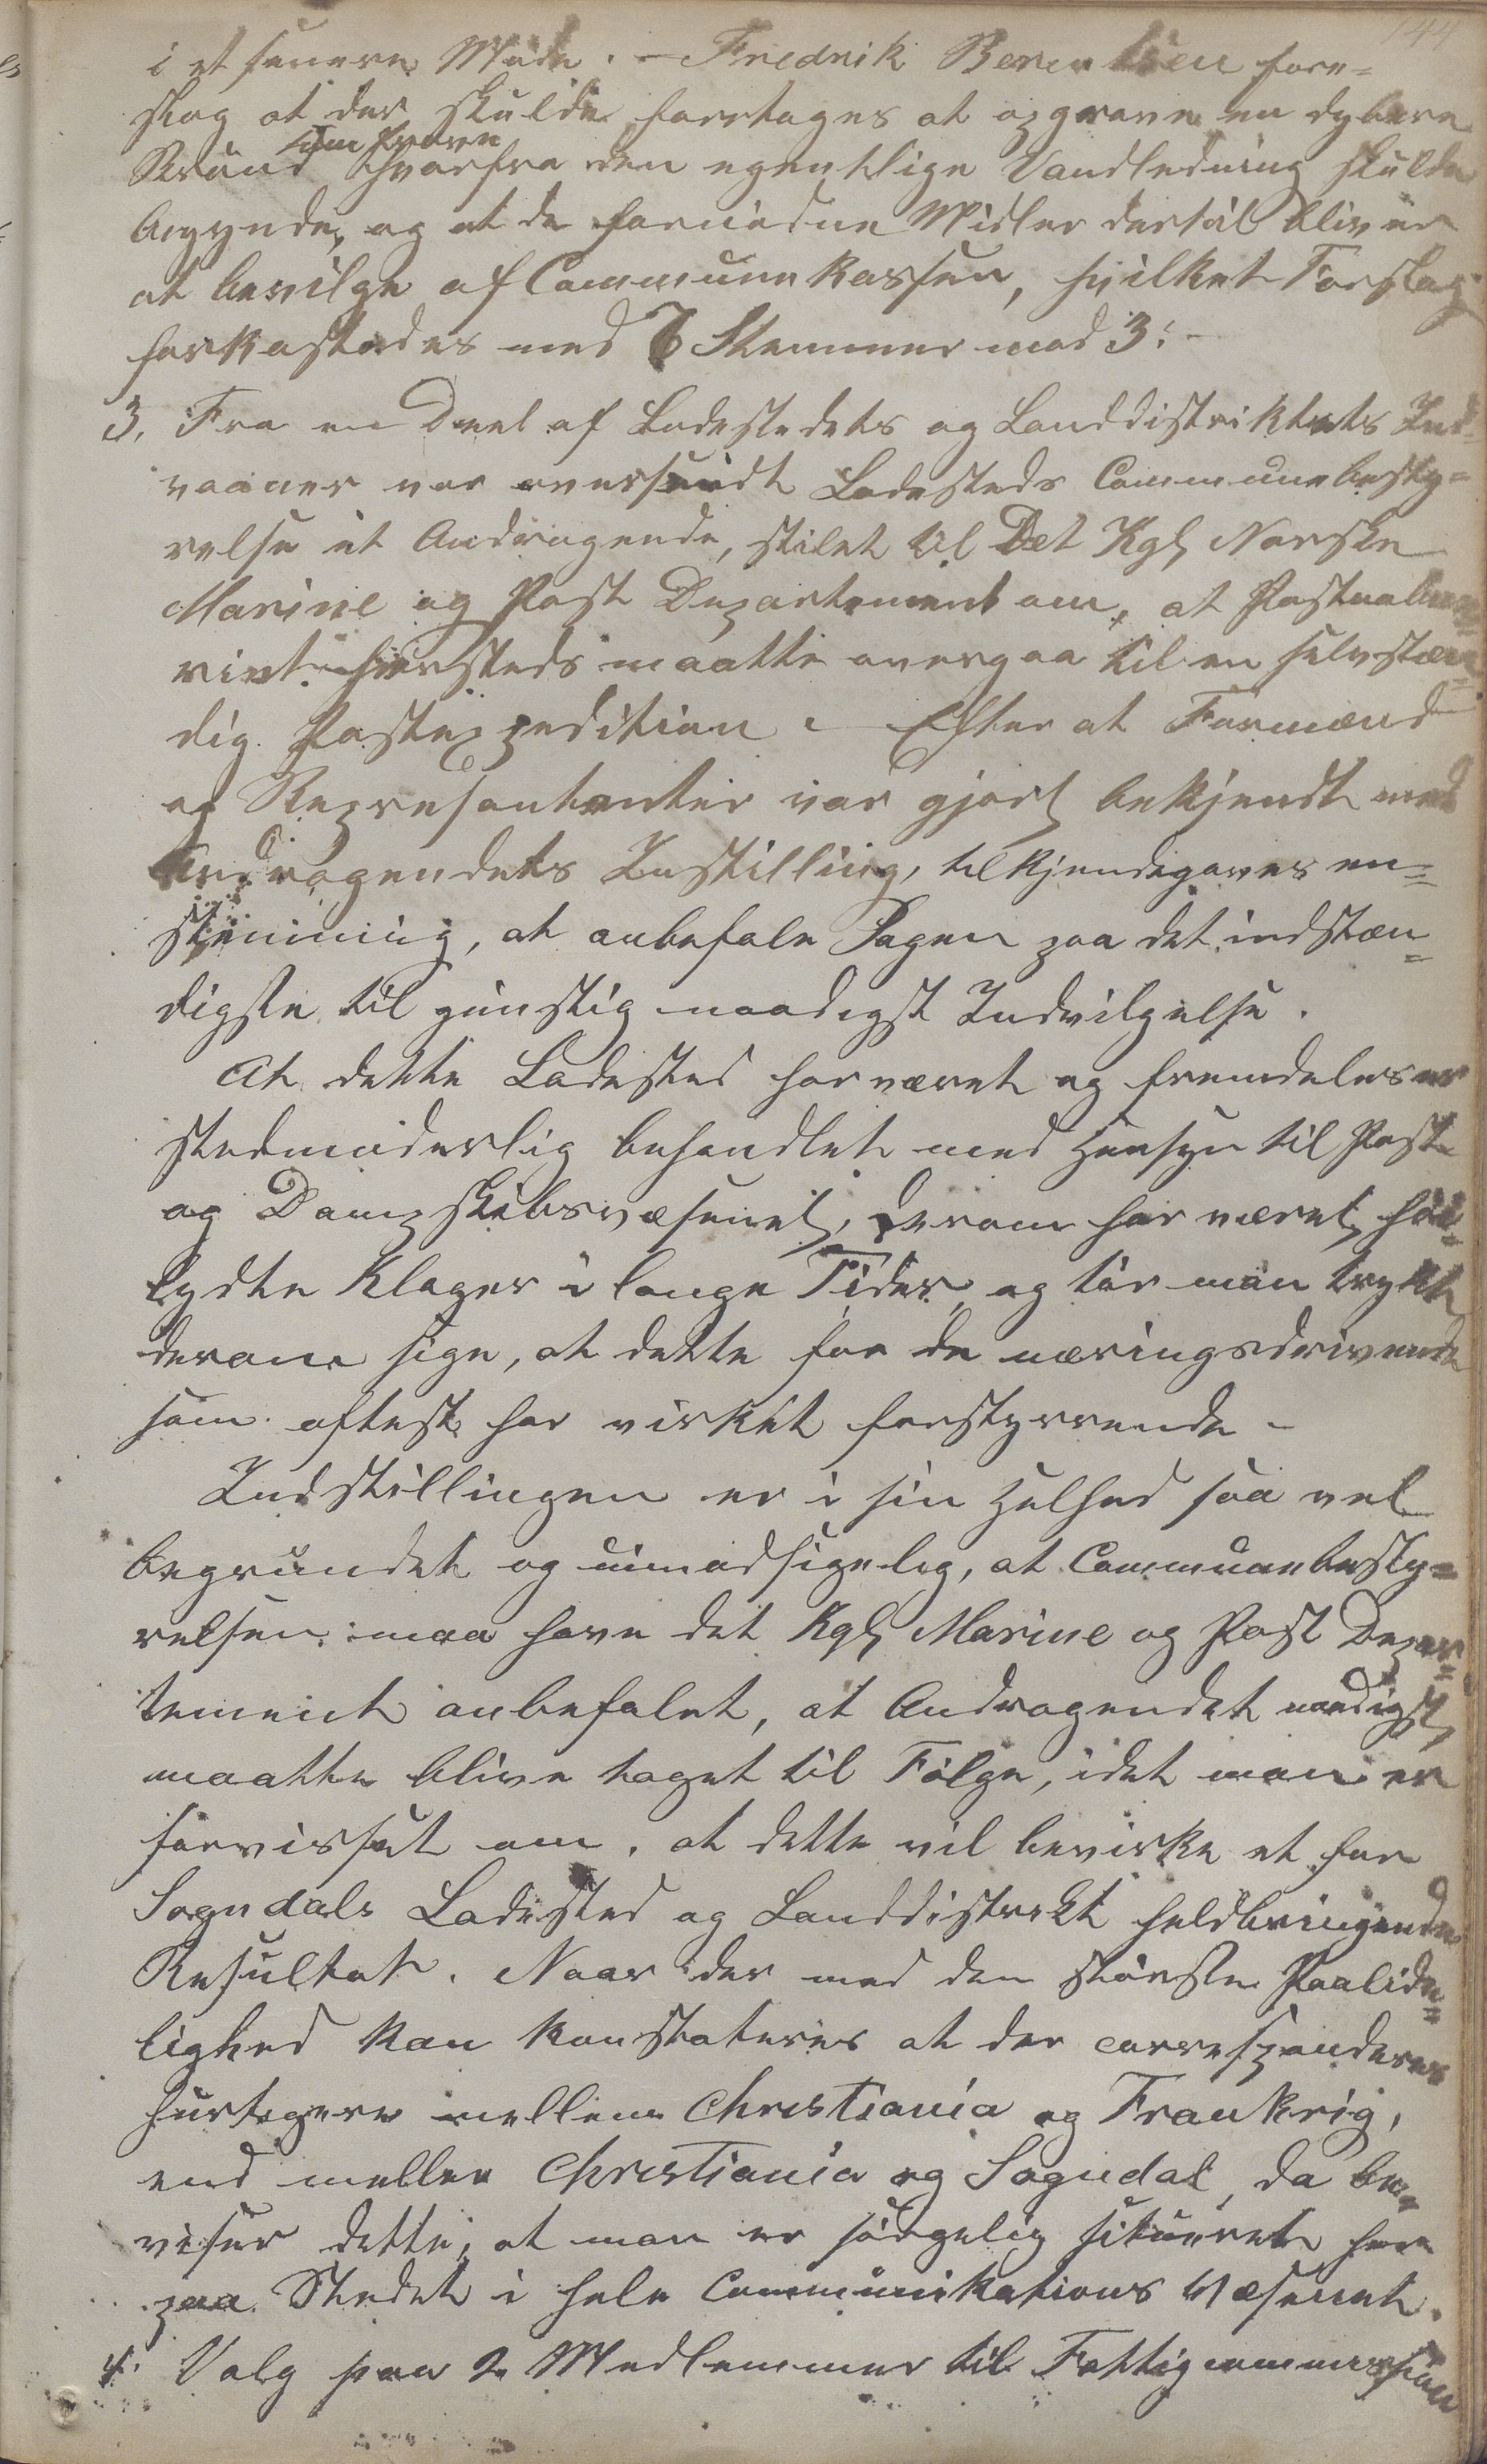 144
i et senere Møde. – Fredrik Berentsen fore=
slog at der skulde foretages at opgrave en dybere
Bründ som Prøve hvorfra den egentlige Vandledning skulde
begynde, og at de fornødne Midler dertil bliver
at bevilge af Communekassen, hvilket Forslag
forkastedes med 7 Stemmer mod 3: –
3, Fra en Deel af Ladestedets og Landdistriktets Ind=
vaaner var oversendt Ladesteds Communebesty=
relse et Andragende, stilet til Det Kgl Norske
Marine og Post Departement om, at Postaabne=
riet hersteds maatte overgaa til en selvstæn=
dig Postexpedition. – Efter at Formænd
og Repræsentanter var gjort bekjendt med
Andragendets Instilling, tilkjendegaves en=
stemmig, at anbefale Sagen paa det indstæn=
digste til günstig naadigst Indvilgelse.
At dette Ladested har været og fremdeles er
stedmoderlig behandlet med Hensyn til Post
og Dampskibsvæsenet, Derom har været høi=
lydte Klager i lange Tider, og tør man trykt
derom sige, at dette for de næringsdrivende
som oftest har virket forstyrrende –
Indstillingen er i sin Helhed saa vel
begründet og uimodsigelig, at Communebesty=
relsen maa have det Kgl Marine og Post Depar=
tement anbefalet, at Andragendet naadigst
maatte blive taget til Følge, idet man er
forvisset om, at dette vil bevirke et for
Sogndals Ladested og Landdistrikt heldbringende
Resultat. Naar der med den største Paalide=
lighed kan konstateres at der correspanderes
hurtigere mellem Christiania og Frankrig,
end mellem Christiania og Sogndal, da be=
viser dette, at man er sørgelig situeret her
paa Stedet i hele Communikations Væsenet.
4. Valg paa 2 Medlemmer til Fattigcommission